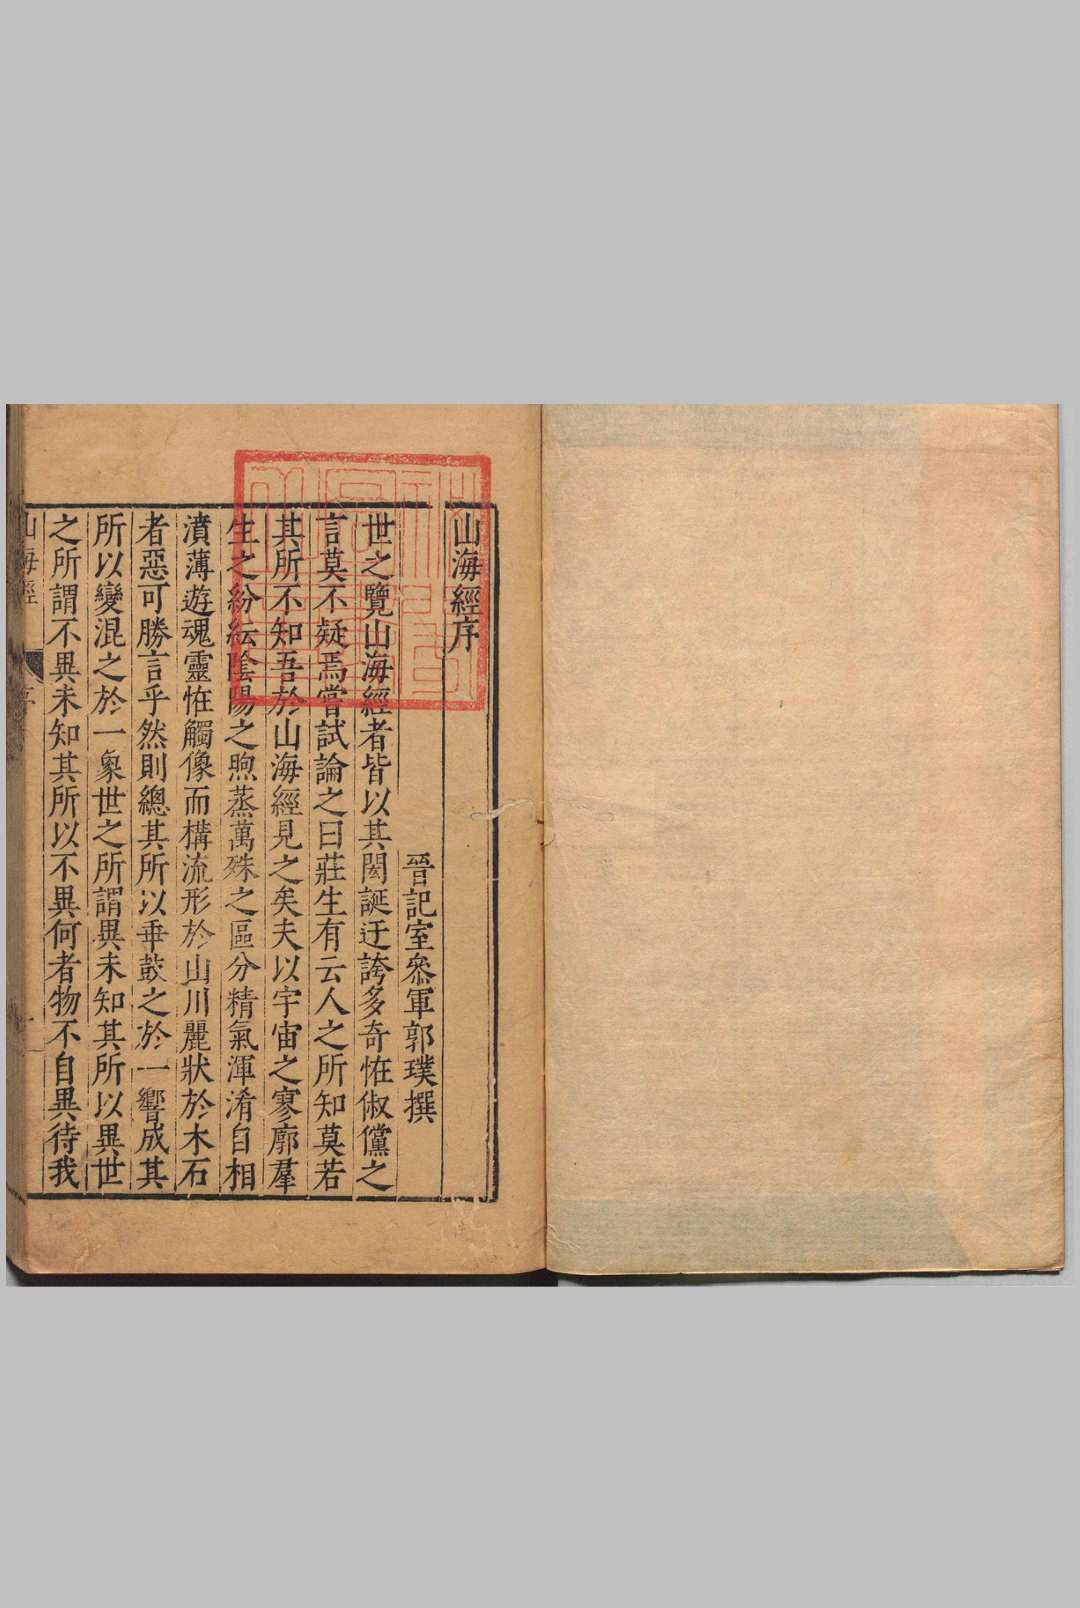 山海經序
晉記室叅軍郭璞撰
世之覽山海經者皆以其閎誕迂誇多奇恠俶儻之
言莫不疑焉嘗試論之曰莊生有云人之所知莫若
其所不知吾於山海經見之矣夫以宇宙之寥廓羣
生之紛紜陰陽之煦蒸萬殊之區分精氣渾淆自相
濆薄遊魂靈恠觸像而構流形於山川麗狀於木石
者惡可勝言乎然則總其所以乖鼓之於一響成其
所以變混之於一象世之所謂異未知其所以異世
之所謂不異未知其所以不異何者物不自異待我
山海經